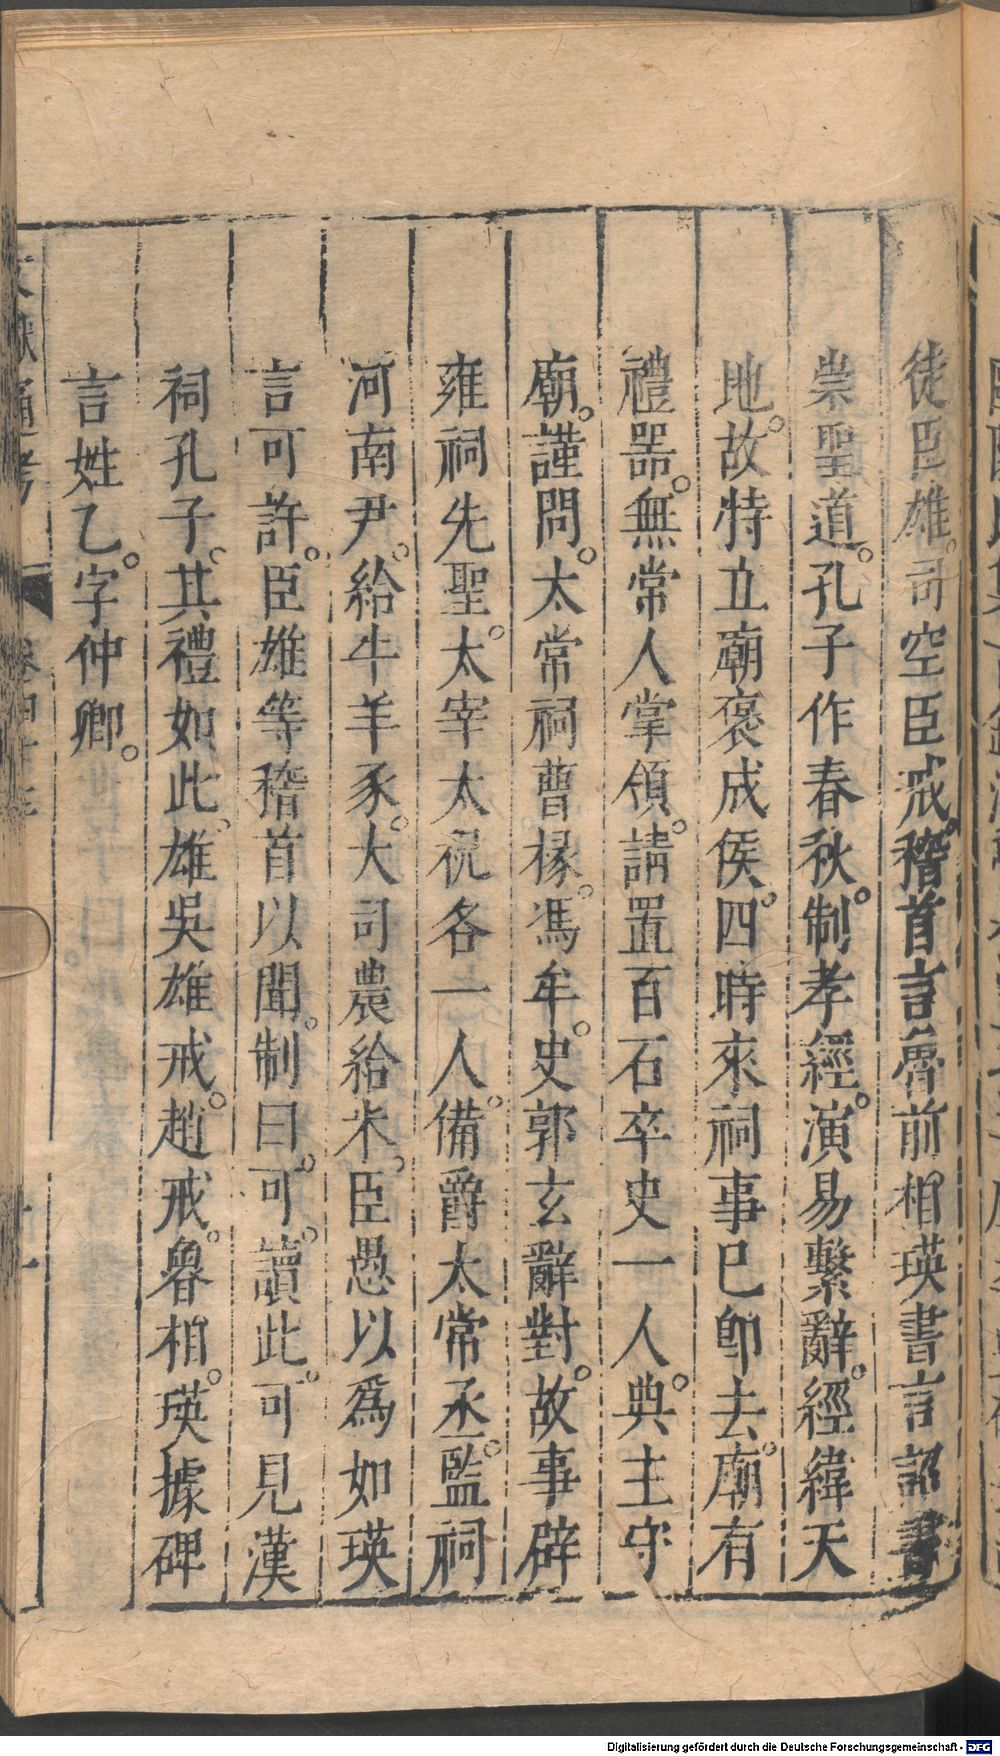 徒臣雄。司空臣戒。稽首言魯前相瑛書言詔書
崇聖道。孔子作春秋。制孝經。演易繫辭。經緯天
地。故特立廟褒成侯。四時來祠事已卽去。廟有
禮器。無常人掌領。請置百石卒史一人。典主守
廟。謹問。太常祠曹掾。馮牟。史郭玄辭對。故事辟
雍祠先聖。太宰太祝各一人。備爵太常丞。監祠
河南尹。給牛羊豕。大司農給米。臣愚以爲如瑛
言可許。臣雄等稽首以聞。制曰。可。讀此。可見漢
祠孔子。其禮如此。雄吳雄戒。趙戒。魯相。瑛據碑
言姓乙。字仲卿。
文獻通考 卷四十三
Digitalisierung gefördert durch die Deutsche Forschungsgemeinschaft - DFG